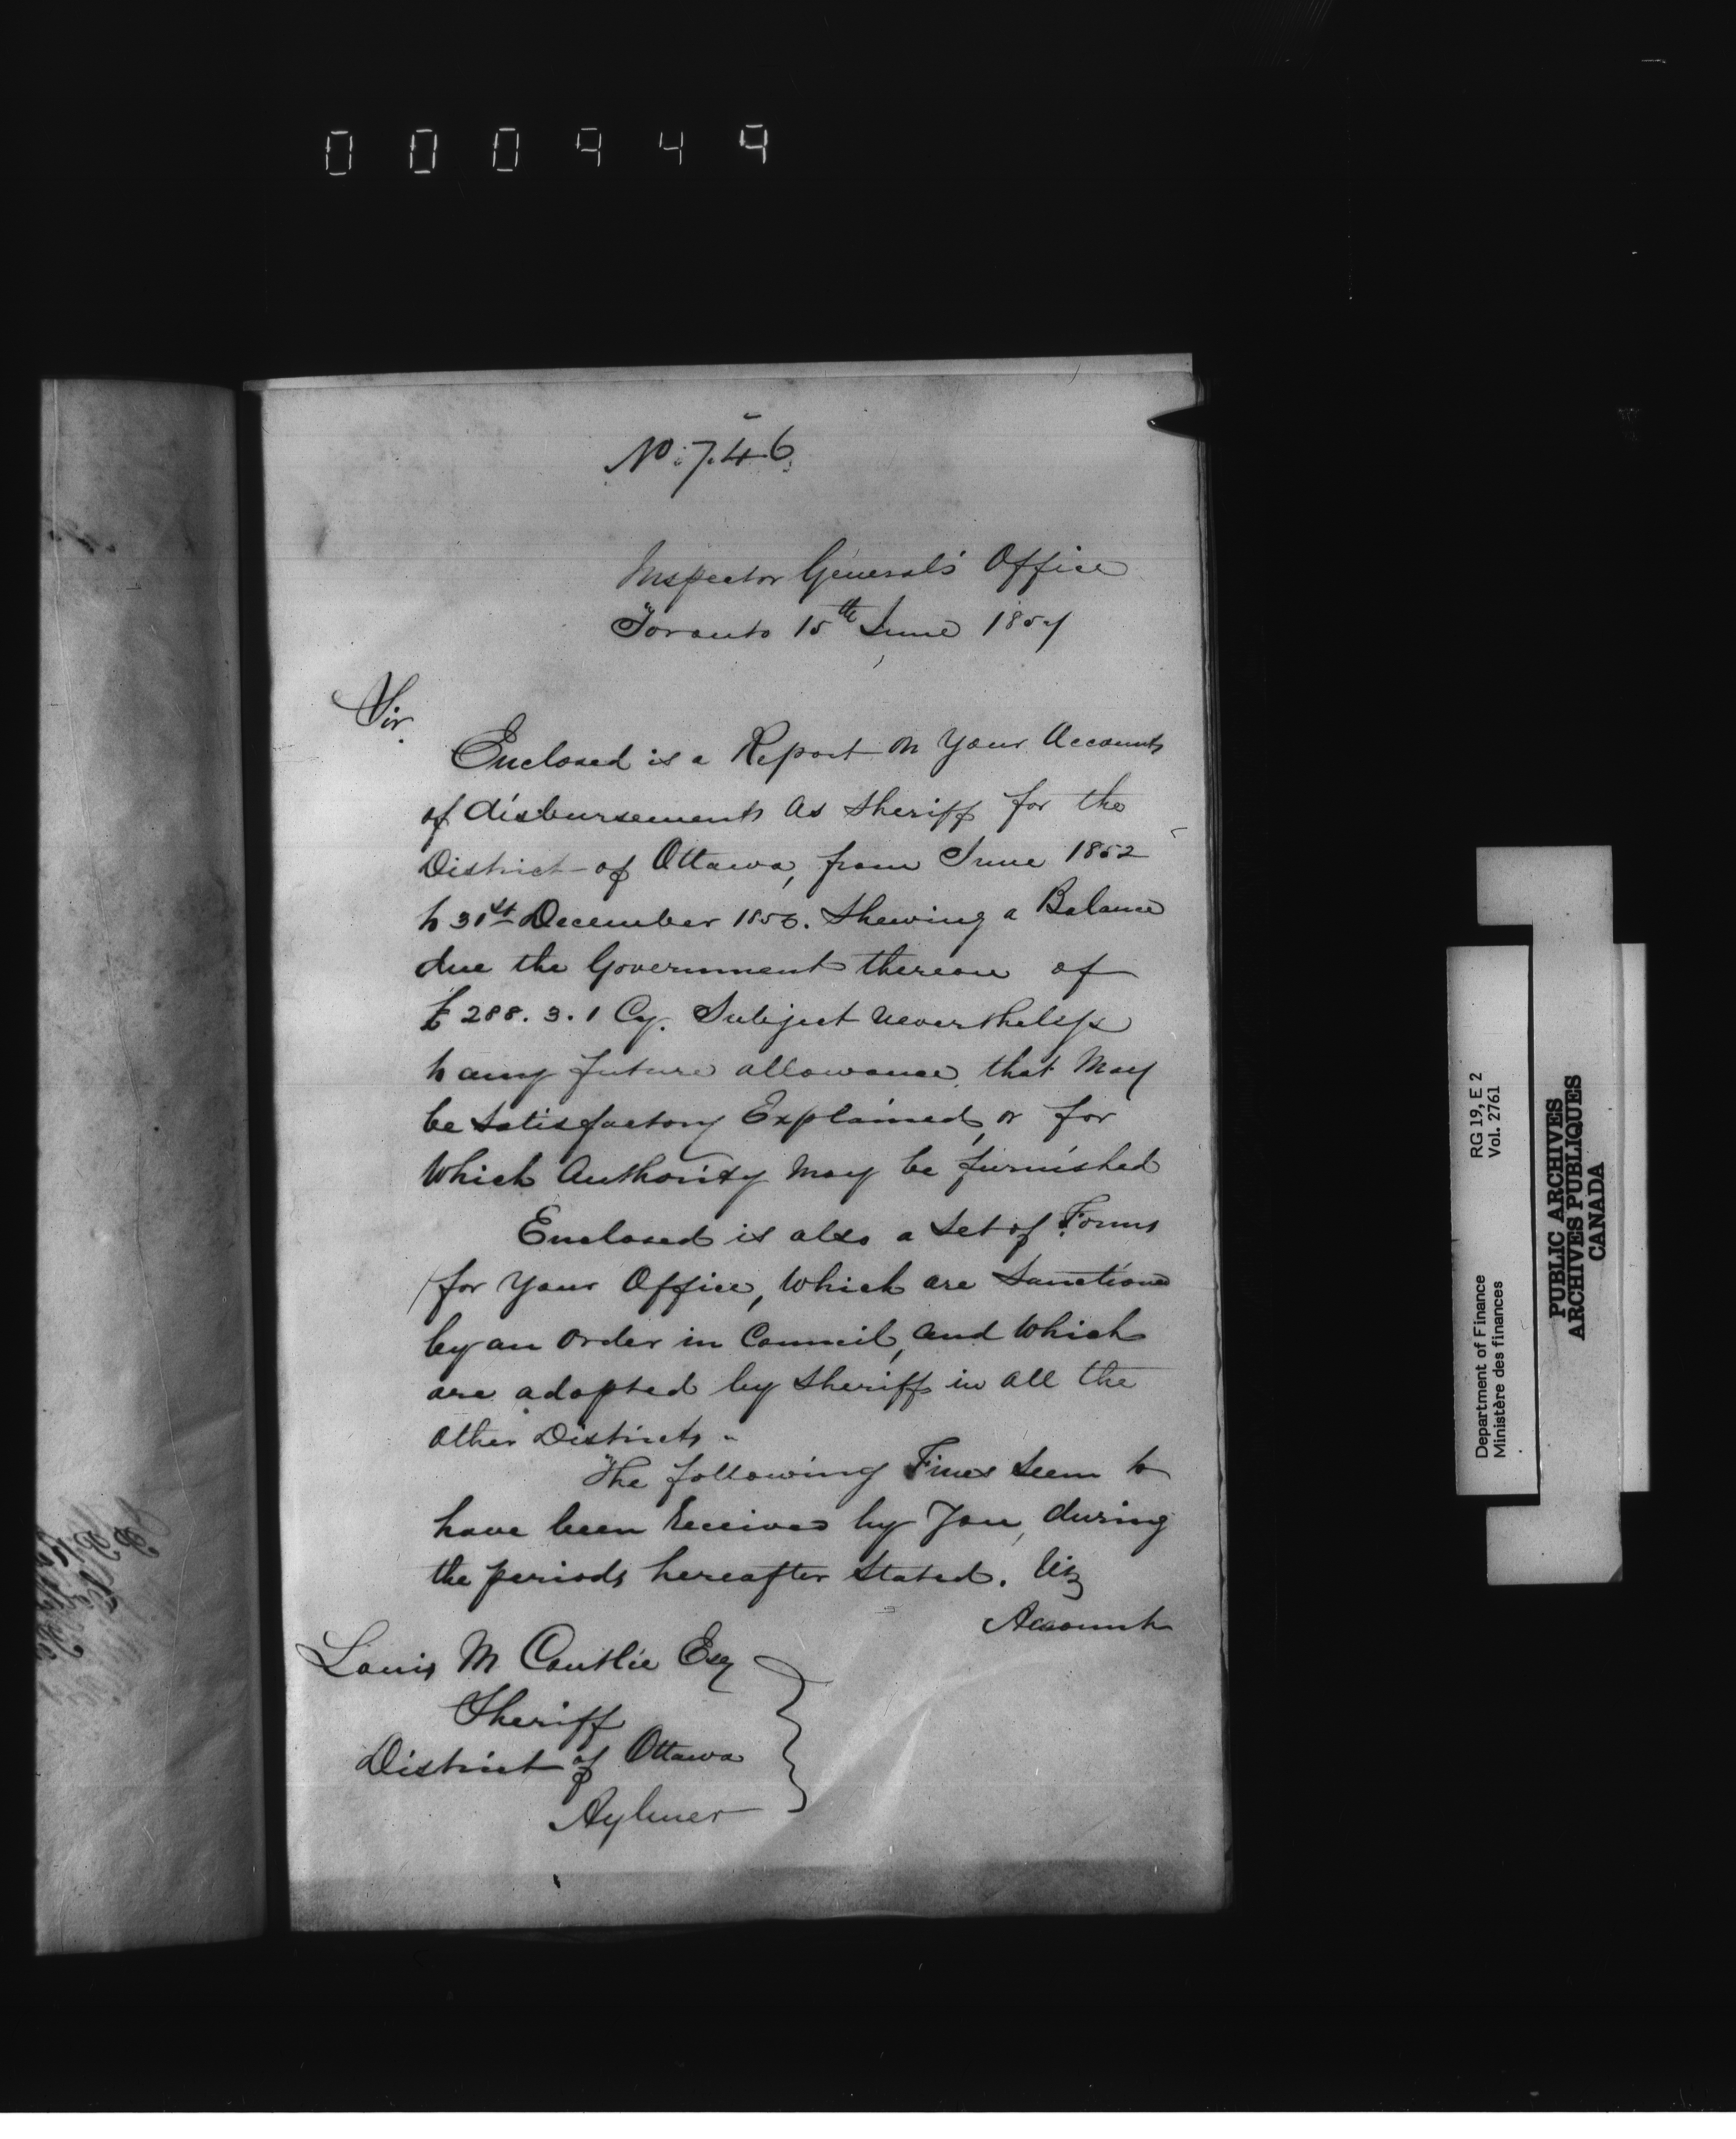 000949
No. 746
Inspector General's Office
Toronto 15th June 1857
Sir.
Enclosed is a Report on Your Accounts
of disbursements As Sheriff for the
District of Ottawa, from June 1852
to 31st December 1856. Shewing a Balance
due the Government thereon of
£288.3.1 Cy. Subject Nevertheless
to any future allowance, that May
be Satisfactory Explained, or for
Which Authority May be furnished
Enclosed is also a Set of Forms
for Your Office, Which are Sanctioned
by an Order in Council, and Which
are adopted by Sheriffs in all the
other Districts.
The following Fines Seem to
have been Received by You, during
the periods hereafter Stated. Viz
Accounts
Louis M Coutlée Esq
Sheriff
District of Ottawa
Aylmer
Department of Finance RG 19, E 2
Ministère des finances Vol. 2761
PUBLIC ARCHIVES
ARCHIVES PUBLIQUES
CANADA